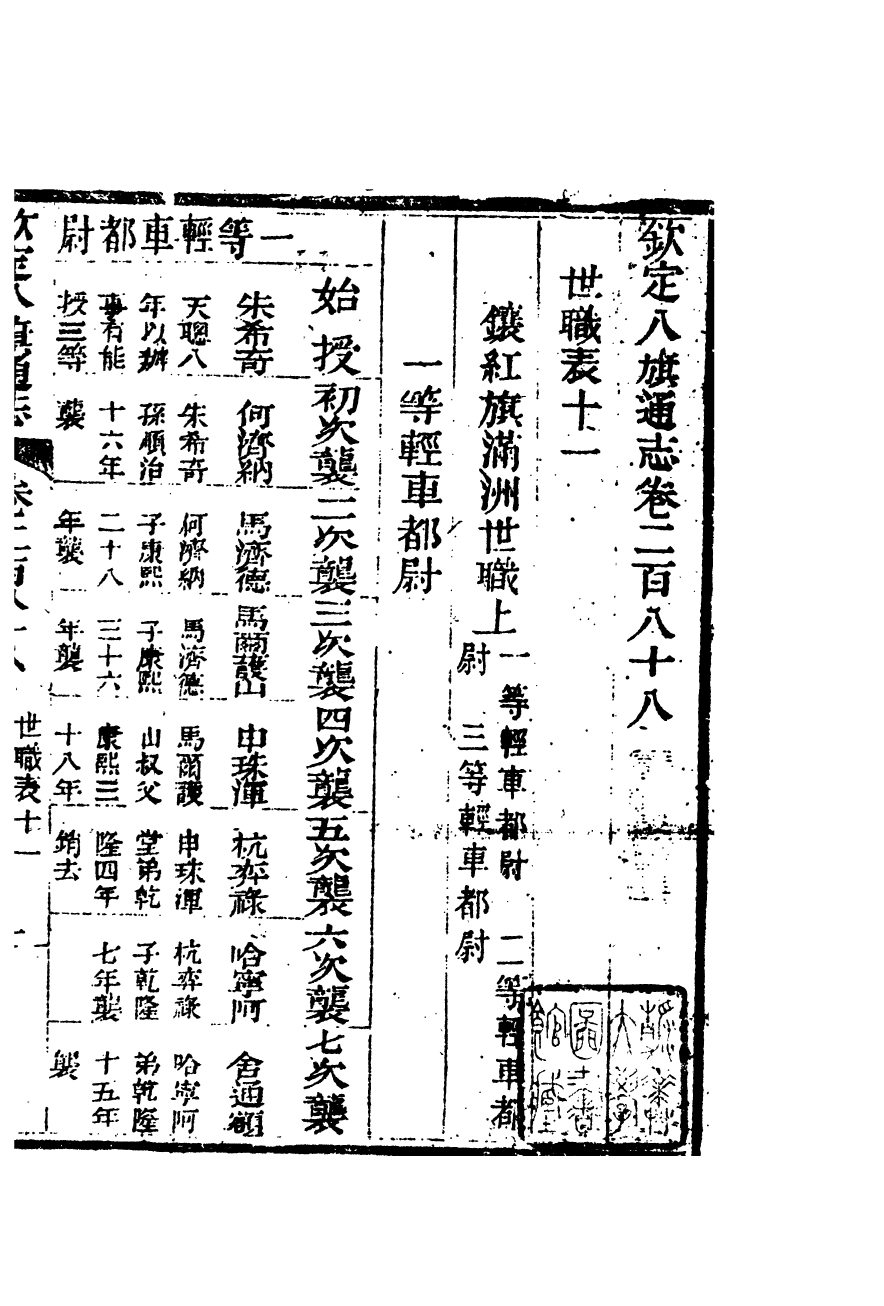 欽定八旗通志卷二百八十八
世職表十一
鑲紅旗滿洲世職上
一等輕車都尉　二等輕車都
尉　三等輕車都尉
一等輕車都尉
始授　初次襲　二次襲　三次襲　四次襲　五次襲　六次襲　七次襲
一等輕車都尉
朱希奇
天聰八
年以辦
事有能
授三等
何濟納
朱希奇
孫順治
十六年
襲
馬濟德
何濟納
子康熙
二十八
年襲
馬爾護山
馬濟德
子康熙
三十六
年襲
申珠渾
馬爾護
山叔父
康熙三
十八年
杭弈祿
申珠渾
堂弟乾
隆四年
銷去
哈寧阿
杭弈祿
子乾隆
七年襲
舍通額
哈寧阿
弟乾隆
十五年
襲
世職表十一